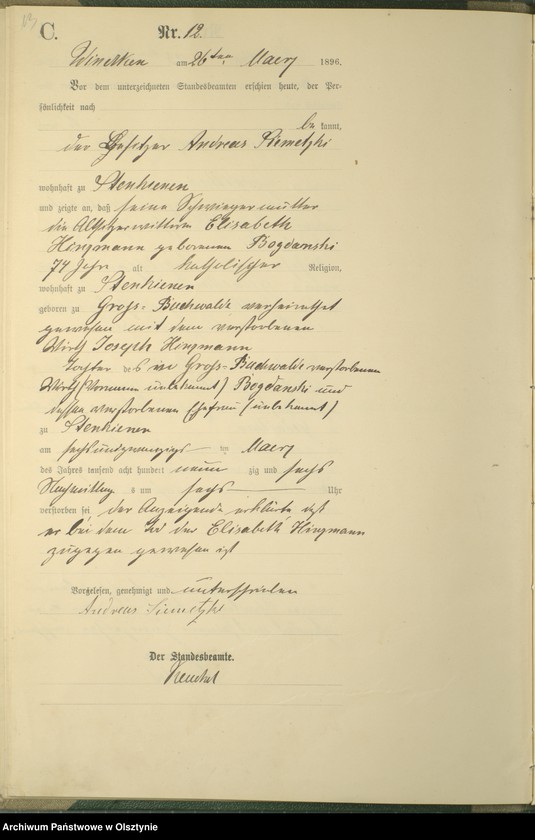 C. Nr. 12.
Winekken am 26ten Maerz 1896.
Vor dem unterzeichneten Standesbeamten erschien heute, der Per-
sönlichkeit nach
be kannt,
der Besitzer Andreas
wohnhaft zu Stenkienen
und zeigte an, daß seine Schwiegermutter
die Altsitzerwittwe Elisabeth
Hinzmann geborenen Bogdanski
74 Jahr alt katholischer Religion,
wohnhaft zu Stenkienen
geboren zu Gross-Buchwalde verheirathet
gewesen mit dem verstorbenen
Wirth Joseph Hinzmann
Tochter des in Gross-Buchwalde verstorbenen
Wirth (Vorname unbekannt) Bogdanski und
dessen verstorbenen Ehefrau (unbekannt)
zu Stenkienen
am sechsundzwanzigs ten Maerz
des Jahres tausend acht hundert neun zig und sechs
Nachmittag s um sechs Uhr
verstorben sei der Anzeigende erklärte daß
er bei dem Tod der Elisabeth Hinzmann
zugegen gewesen ist
Vorgelesen, genehmigt und unterschrieben
Andreas
Der Standesbeamte.
Archiwum Państwowe w Olsztynie